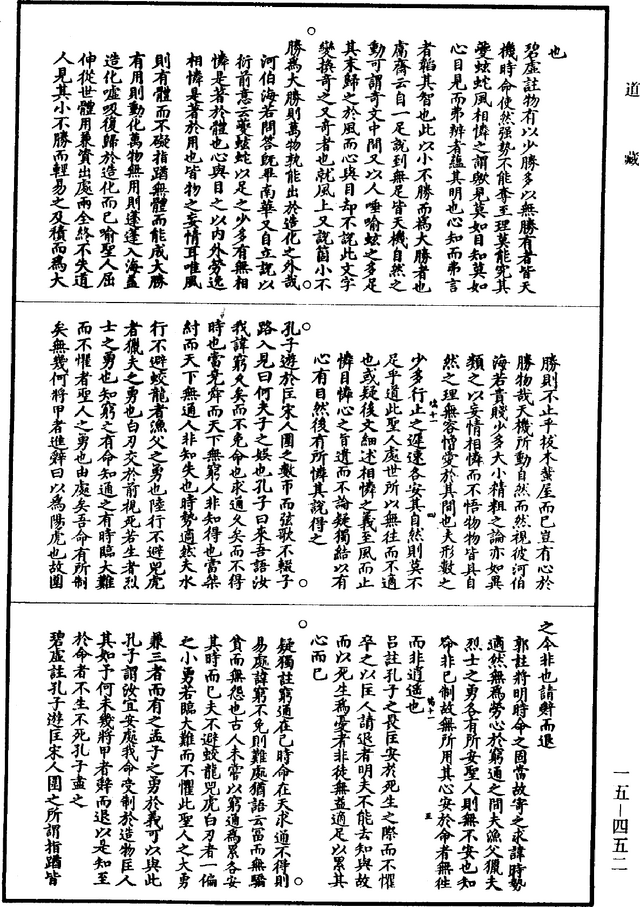 道藏
也
碧虛註物有以少勝多以無勝有者皆天
機時命使然强勢不能奪至理莫能究其
夔蚿蛇風相憐之謂歟見莫如目知莫如
心目見而弗辨者蘊其明也心知而弗言
者韜其智也此以小不勝而為大勝者也
鬳齋云自一足說到無足皆天機自然之
動可謂奇文中間又以人唾喻蚿之多足
其末歸之於風而心與目却不說此文字
變換奇之又奇者也就風上又說箇小不
勝為大勝則萬物孰能出於造化之外哉
河伯海若問答既畢南華又自立說以
衍前意云夔蚿蛇以足之少多有無相
憐是著於體也心與目之以内外勞逸
相憐是著於用也皆物之妄情耳唯風
則有體而不礙指䠓無體而能成大勝
有用則動化萬物無用則蓬蓬入海蓋
造化噓吸復歸於造化而已喻聖人屈
伸從世體用兼資出處兩全終不失道
人見其小不勝而輕易之及積而為大
勝則不止乎拔木蜚屋而已豈有心於
勝物哉天機所動自然而然視彼河伯
海若貴賤少多大小精粗之論亦如異
類之以妄情相憐而不悟物物皆具自
然之理無容憎愛於其間也夫形數之
少多行止之遲速各安其自然則莫不
足乎道此聖人處世所以無往而不適
也或疑後文細述相憐之義至風而止
憐目憐心之旨遺而不論疑獨結以有
心有目然後有所憐其說得之
孔子遊於匡宋人圍之數帀而弦歌不輟子
路入見曰何夫子之娱也孔子曰來吾語汝
我諱窮久矣而不免命也求通久矣而不得
時也當堯舜而天下無窮人非知得也當桀
紂而天下無通人非知失也時勢適然夫水
行不避蛟龍者漁父之勇也陸行不避兕虎
者獵夫之勇也白刃交於前視死若生者烈
士之勇也知窮之有命知通之有時臨大難
而不懼者聖人之勇也由處矣吾命有所制
矣無幾何將甲者進辭曰以為陽虎也故圍
之今非也請辭而退
郭註將明時命之固當故寄之求諱時勢
適然無為勞心於窮通之間夫漁父獵夫
烈士之勇各有所安聖人則無不安也知
命非己制故無所用其心安於命者無往
而非逍遥也
吕註孔子之畏匡安於死生之際而不懼
卒之以匡人請退者明夫不能去知與故
而以死生為憂者非徒無益適足以累其
心而已
疑獨註窮通在己時命在天求通不得則
易處諱窮不免則難處猶語云富而無驕
貧而無怨也古人未嘗以窮通為累各安
其時而已夫不避蛟龍兕虎白刃者一偏
之小勇若臨大難而不懼此聖人之大勇
兼三者而有之孟子之勇於義可以與此
孔子謂汝宜安處我命受制於造物匡人
其如予何未幾將甲者辭而退以是知至
於命者不生不死孔子盡之
碧虛註孔子遊匡宋人圍之所謂指䠓皆
一五—四五二